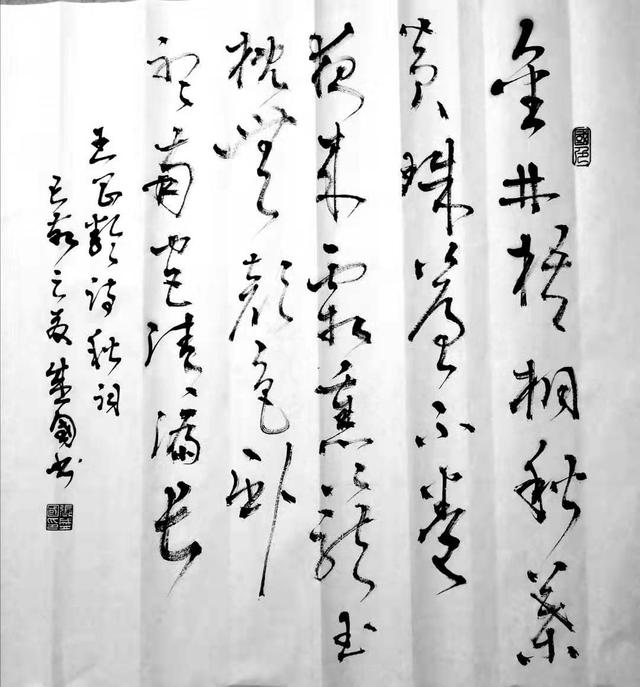 金井梧桐秋葉
黄珠簾不卷
夜来霜熏籠玉
枕無顔色卧
聽南宫清漏长
王昌龄诗秋词
己亥之夏盛國书